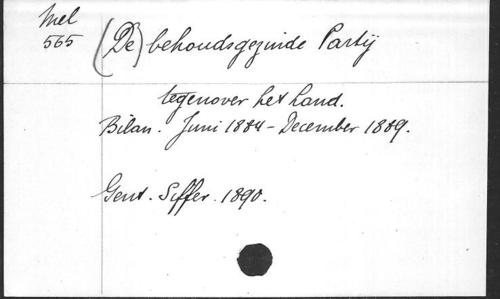 Mel
565
(De) behoudsgezinde Partij
tegenover het Land.
Bilan. Juni 1884 - December 1889.
Gent. Siffer. 1890.